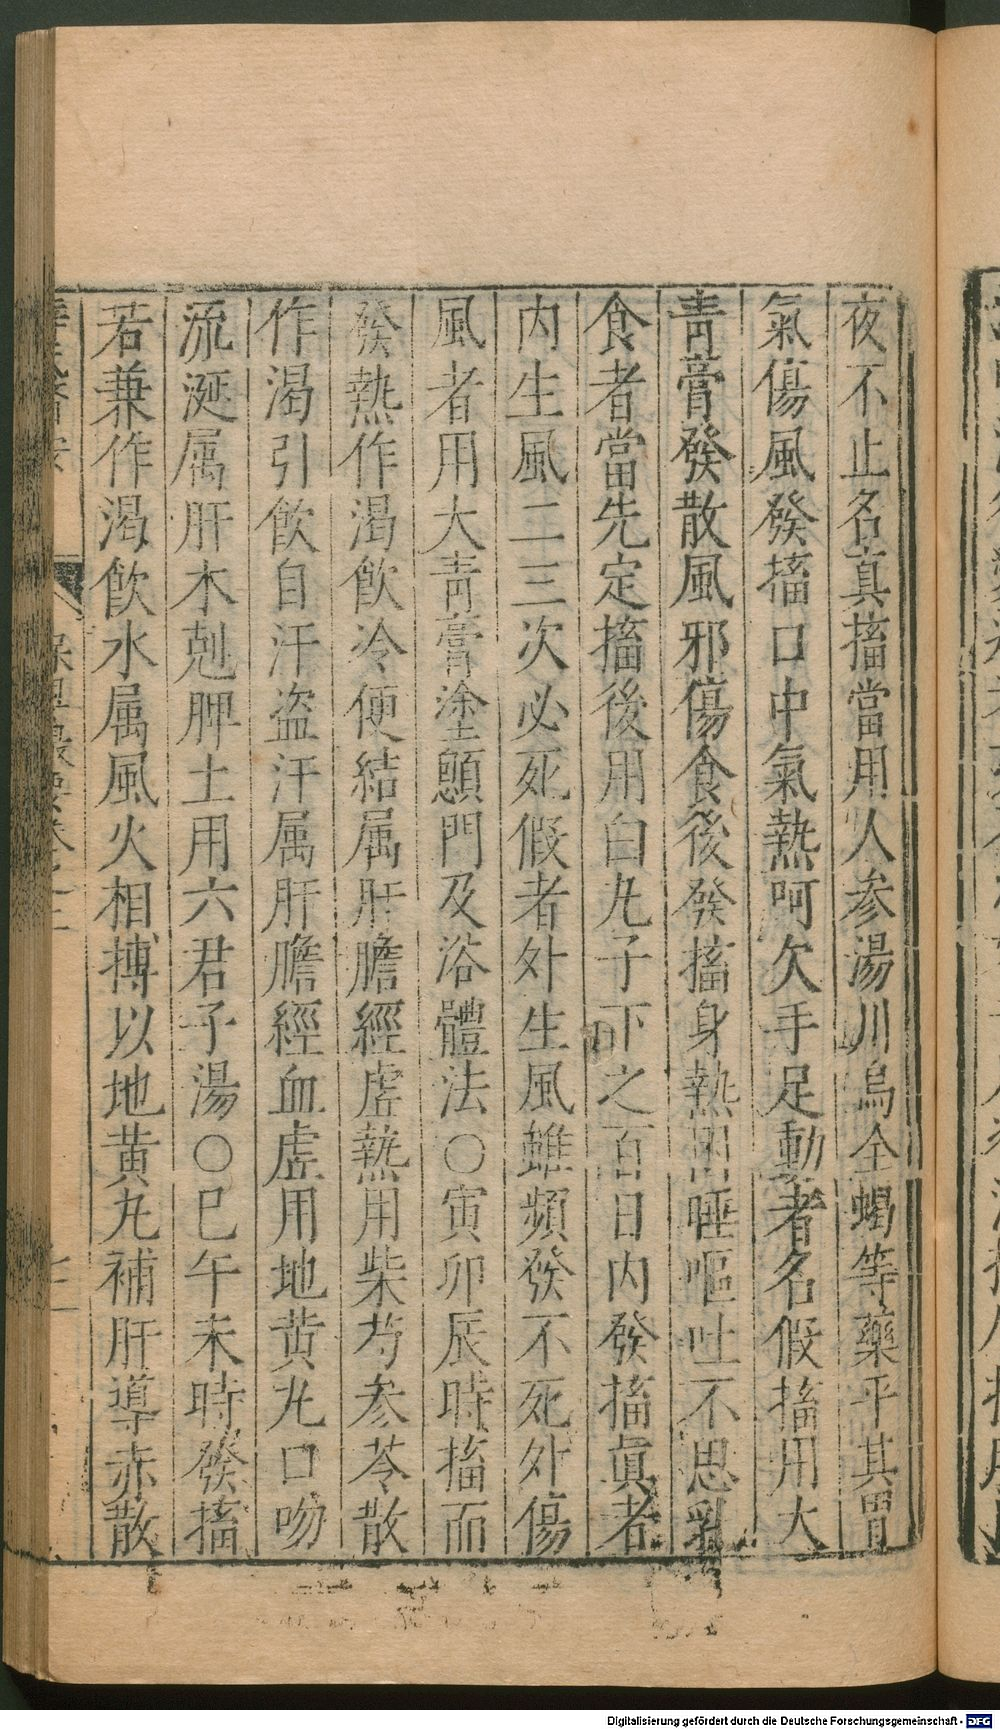 夜不止名真搐當用人参湯川烏全蝎等藥平其胃
氣傷風發搐口中氣熱呵欠手足動者名假搐用大
青膏發散風邪傷食後發搐身熱困唾嘔吐不思乳
食者當先定搐後用白丸子下之百日内發搐眞者
内生風二三次必死假者外生風雖頻發不死外傷
風者用大青膏塗顖門及浴體法○寅卯辰時搐而
發熱作渴飲冷便結属肝膽經虚熱用柴芍参苓散
作渴引飲自汗盗汗属肝膽經血虚用地黄丸口吻
流涎属肝木剋脾土用六君子湯○巳午未時發搐
若兼作渴飲水属風火相搏以地黄丸補肝導赤散
Digitalisierung gefördert durch die Deutsche Forschungsgemeinschaft - DFG